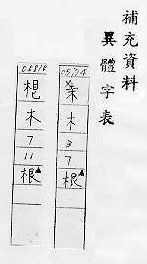 補充資料
異體字表
木
3
7
根▲
木
7
11
根▲